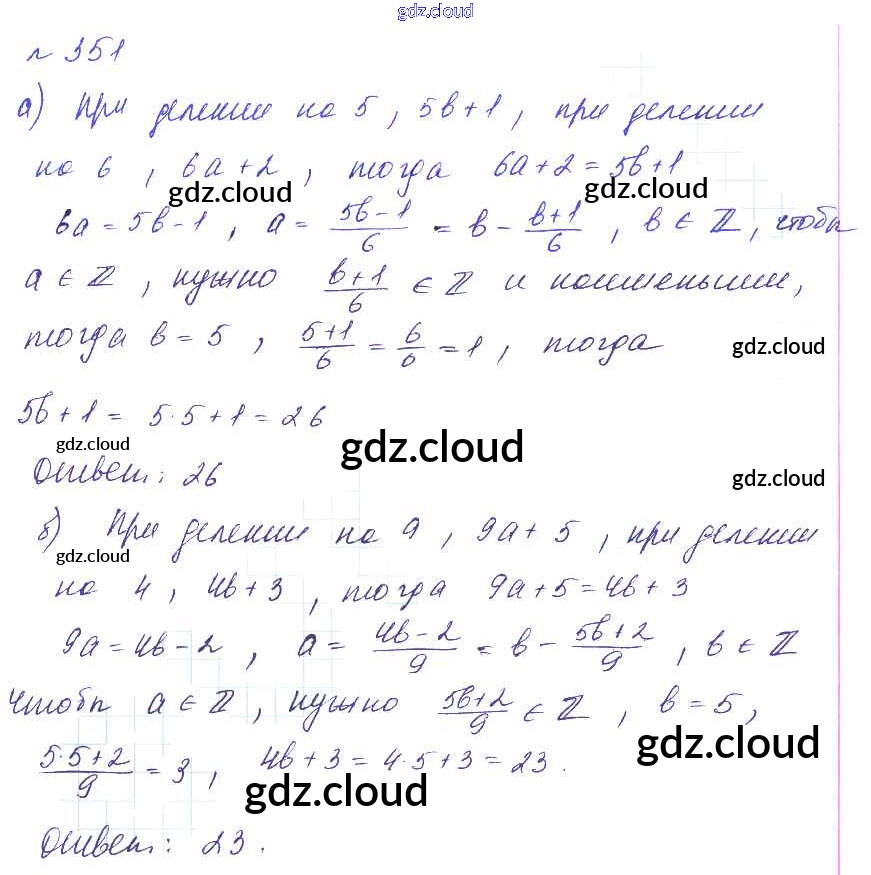 gdz.cloud
№ 351
а) При делении на 5, 5b+1, при делении
на 6, 6a+2, тогда 6a+2=5b+1
gdz.cloud gdz.cloud
6a=5b-1, a= \frac{5b-1}{6} = b - \frac{b+1}{6}, b ∈ ℤ, чтобы
a ∈ ℤ, нужно \frac{b+1}{6} ∈ ℤ и наименьшим,
тогда b=5, \frac{5+1}{6} = \frac{6}{6} = 1, тогда
gdz.cloud
5b+1= 5·5+1=26
gdz.cloud gdz.cloud
Ответ: 26
gdz.cloud
б) При делении на 9, 9a+5, при делении
gdz.cloud
на 4, 4b+3, тогда 9a+5=4b+3
9a=4b-2, a= \frac{4b-2}{9} = b - \frac{5b+2}{9}, b ∈ ℤ
Чтобы a ∈ ℤ, нужно \frac{5b+2}{9} ∈ ℤ, b=5,
gdz.cloud
\frac{5·5+2}{9} = 3, 4b+3=4·5+3=23.
gdz.cloud
Ответ: 23.